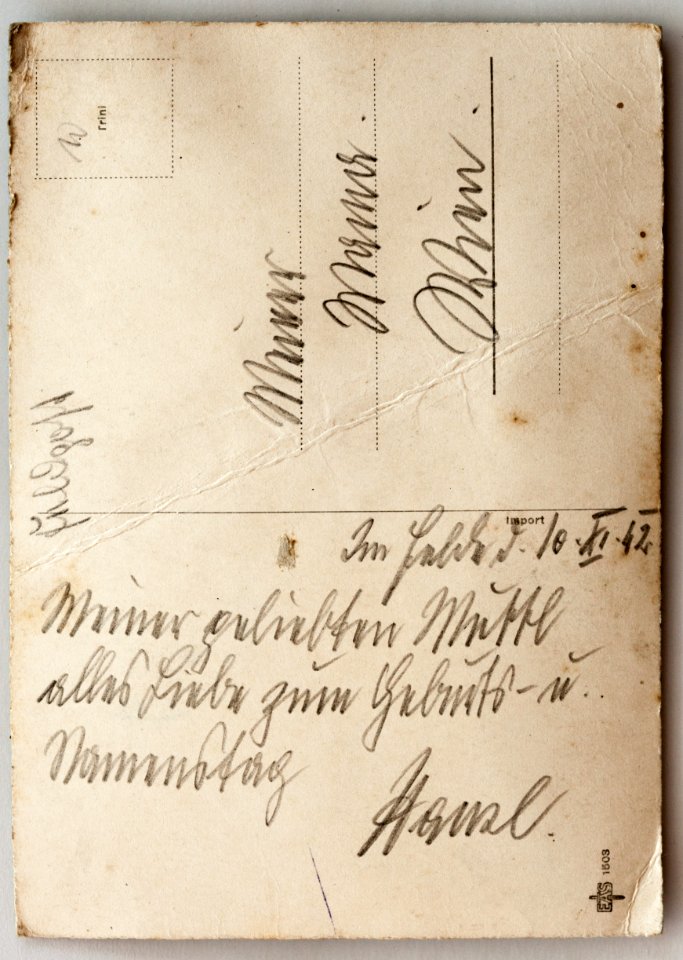 Feldpost
Meiner
Mama.
Wien.
Import
Im Felde d. 10.XI.42.
Meiner geliebten Muttl
alles Liebe zum Geburts- u.
Namenstag
Hansl.
EAS 1503